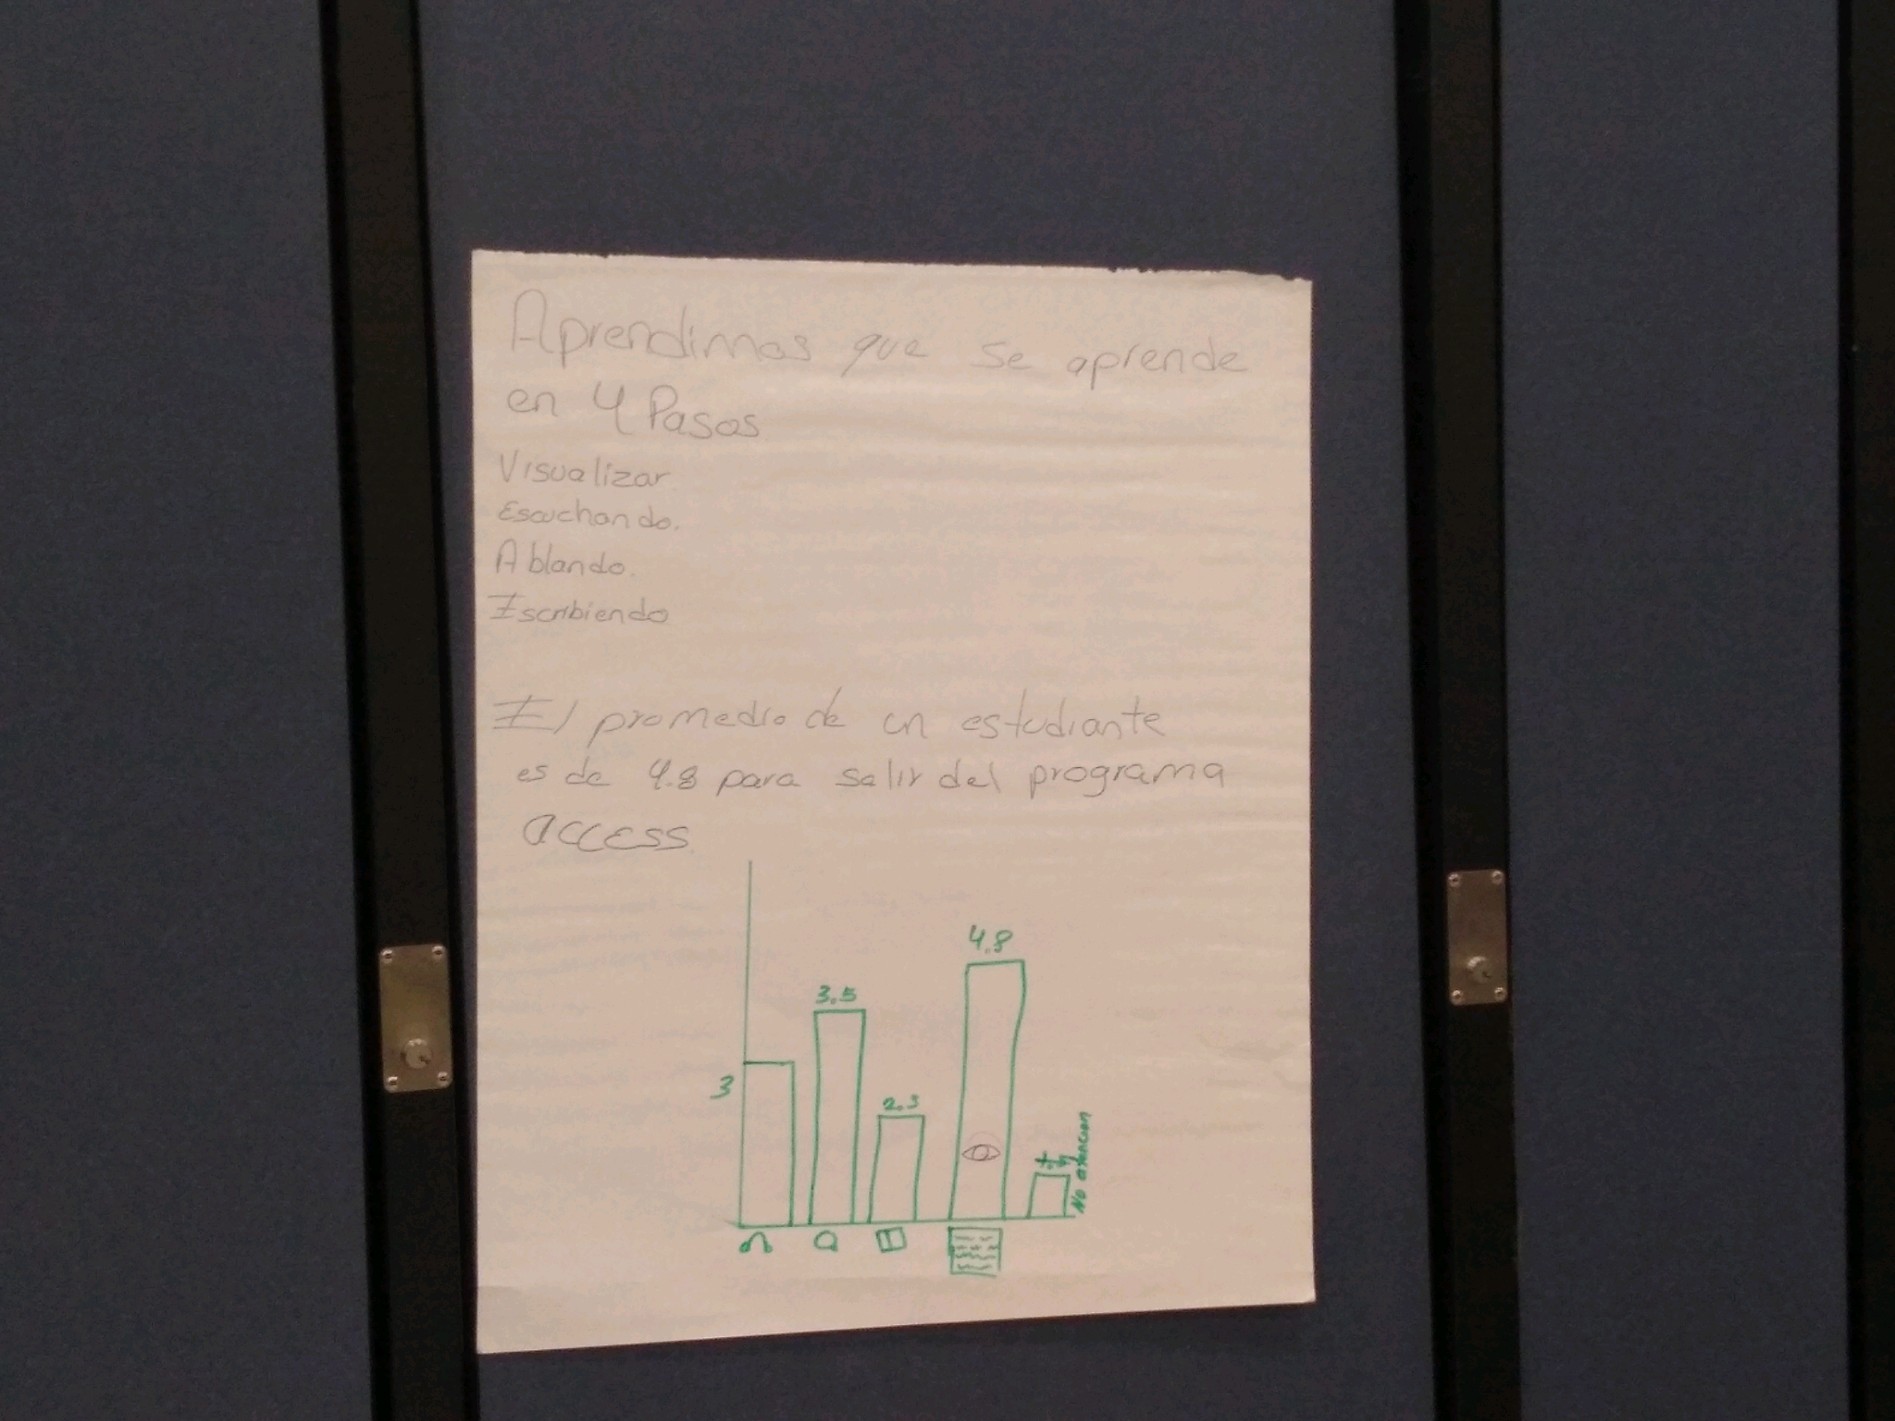 Aprendimos que se aprende
en 4 Pasos
Visualizar
Escuchando.
Ablando.
Escribiendo
El promedio de un estudiante
es de 4.8 para salir del programa
access
4.8
3.5
3
2.3
No atencion